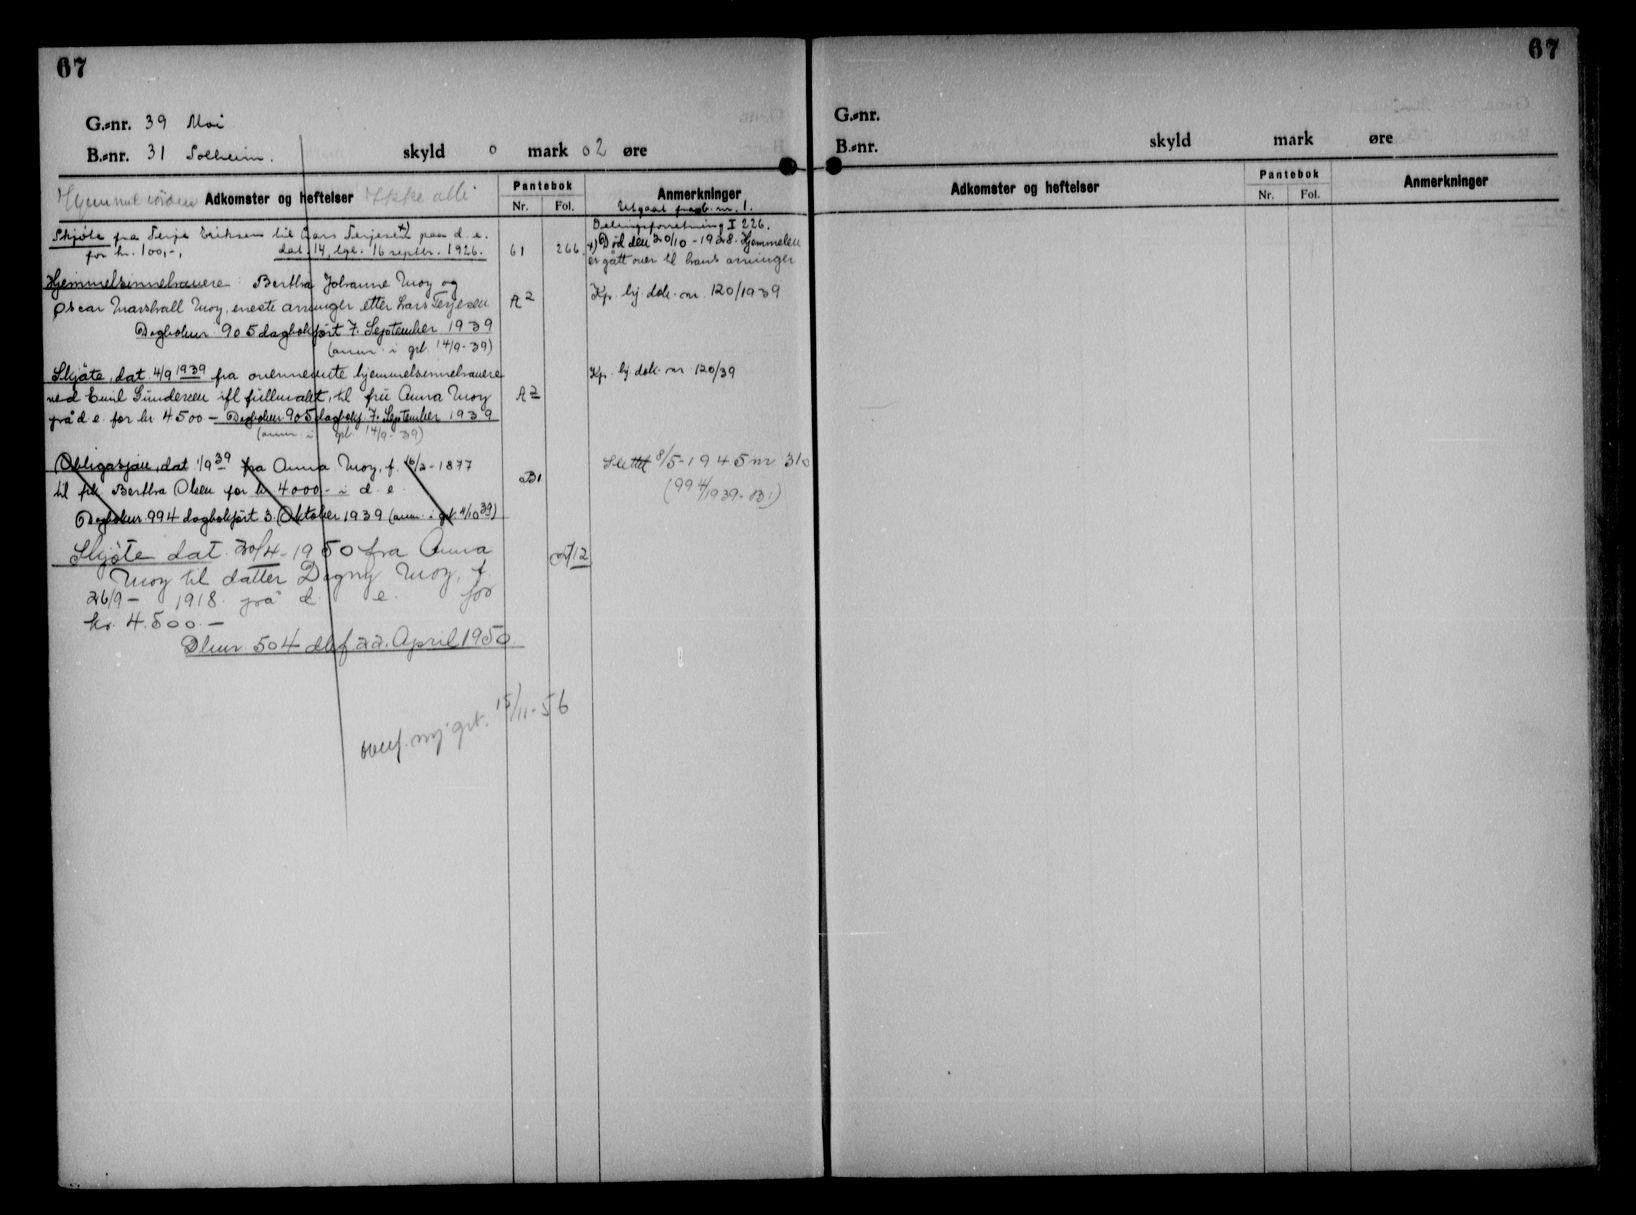 67
G.nr. 39 Moi
B.nr. 31 Solheim.
skyld 0 mark 02 øre
Adkomster og heftelser
Ikke
Pantebok
Nr. Fol.
Anmerkninger
Utgaat fra b.nr. 1.
Delingsforretning I 226.
Skjøte fra Terje Eriksen til Lars Terjesen +) paa d. e.
for kr. 100,-, dat. 14, tgl. 16 septbr. 1926.
61 266
+) Død den 20/10 - 1928. Hjemmelen
er gått over til hans arvinger
Hjemmelsinnehavere: Bertha Johanne Moy og
Oscar Marshall Moy, eneste arvinger etter Lars Terjesen
Dagboknr. 905 dagbokført 7. September 1939
(anm. i grb. 14/9-39)
A2
Kfr. hj. dok. nr. 120/1939
Skjøte, dat. 4/9 1939 fra ovennevnte hjemmelsinnehavere
ved Emil Gundersen ifl fullmakt, til fru Anna Moy
på d. e. for kr 4500.- Dagboknr 905 dagbokf. 7. September 1939
(anm. i grb. 14/9-39)
A2
Kfr. hj. dok. nr 120/39
Obligasjon, dat 1/9 39 fra Anna Moy, f. 16/2-1877
til frk. Bertha Olsen for kr 4000,- i d. e.
Dagboknr 994 dagbokført 3. Oktober 1939 (anm. i grb. 4/10 39)
B1
Slettet 8/5-1945 nr 310
(994/1939-B1)
Skjøte dat. 20/4-1950 fra Anna
Moy til datter Dagny Moy, f.
26/9- 1918 på d. e. for
kr. 4.500.-
Dbnr. 504 dbf 22. April 1950.
A12
overf. ny grb. 15/11-56
67
G.nr.
B.nr.
skyld mark øre
Adkomster og heftelser
Pantebok
Nr. Fol.
Anmerkninger